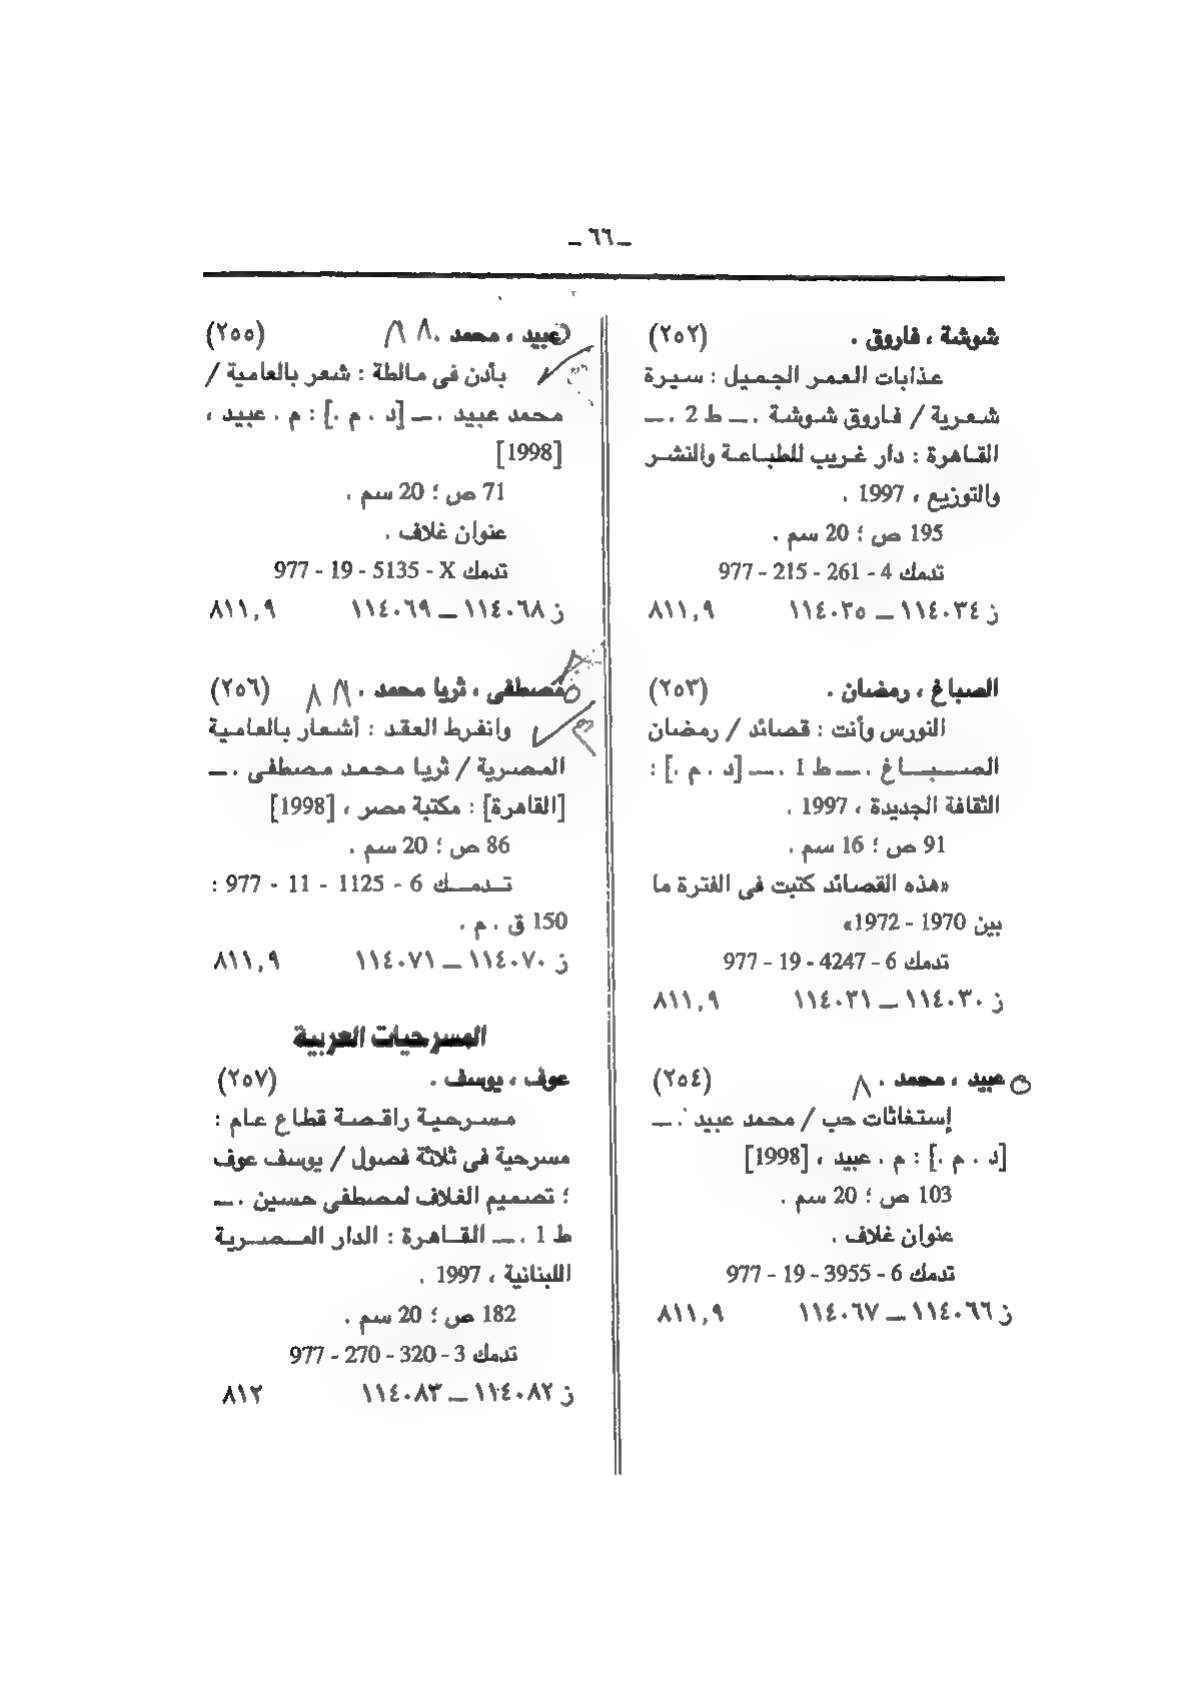 ــ ٦٦ ــ
شوشة ، فاروق . (٢٥٢)
عذابات العمر الجميل : سيرة
شعرية / فاروق شوشة . ــ ط 2 . ــ
القاهرة : دار غريب للطباعة والنشر
والتوزيع ، 1997 .
195 ص ؛ 20 سم .
تدمك 4 - 261 - 215 - 977
ز ١١٤٠٣٤ ــ ١١٤٠٣٥ ٨١١,٩
الصباغ ، رمضان . (٢٥٣)
النورس وأنت : قصائد / رمضان
الصباغ . ــ ط 1 . ــ [د . م .] :
الثقافة الجديدة ، 1997 .
91 ص ؛ 16 سم .
«هذه القصائد كتبت فى الفترة ما
بين 1970 - 1972»
تدمك 6 - 4247 - 19 - 977
ز ١١٤٠٣٠ ــ ١١٤٠٣١ ٨١١,٩
عبيد ، محمد . ٨ (٢٥٤)
إستغاثات حب / محمد عبيد . ــ
[د . م .] : م . عبيد ، [1998]
103 ص ؛ 20 سم .
عنوان غلاف .
تدمك 6 - 3955 - 19 - 977
ز ١١٤٠٦٦ ــ ١١٤٠٦٧ ٨١١,٩
عبيد ، محمد . ٨ ٨ (٢٥٥)
بأدن فى مالطة : شعر بالعامية /
محمد عبيد . ــ [د . م .] : م . عبيد ،
[1998]
71 ص ؛ 20 سم .
عنوان غلاف .
تدمك X - 5135 - 19 - 977
ز ١١٤٠٦٨ ــ ١١٤٠٦٩ ٨١١,٩
مصطفى ، ثريا محمد . ٨ ٨ (٢٥٦)
وانفرط العقد : أشعار بالعامية
المصرية / ثريا محمد مصطفى . ــ
[القاهرة] : مكتبة مصر ، [1998]
86 ص ؛ 20 سم .
تدمك 6 - 1125 - 11 - 977 :
150 ق . م .
ز ١١٤٠٧٠ ــ ١١٤٠٧١ ٨١١,٩
المسرحيات العربية
عوف ، يوسف . (٢٥٧)
مسرحية راقصة قطاع عام :
مسرحية فى ثلاثة فصول / يوسف عوف
؛ تصميم الغلاف لمصطفى حسين . ــ
ط 1 . ــ القاهرة : الدار المصرية
اللبنانية ، 1997 .
182 ص ؛ 20 سم .
تدمك 3 - 320 - 270 - 977
ز ١١٤٠٨٢ ــ ١١٤٠٨٣ ٨١٢